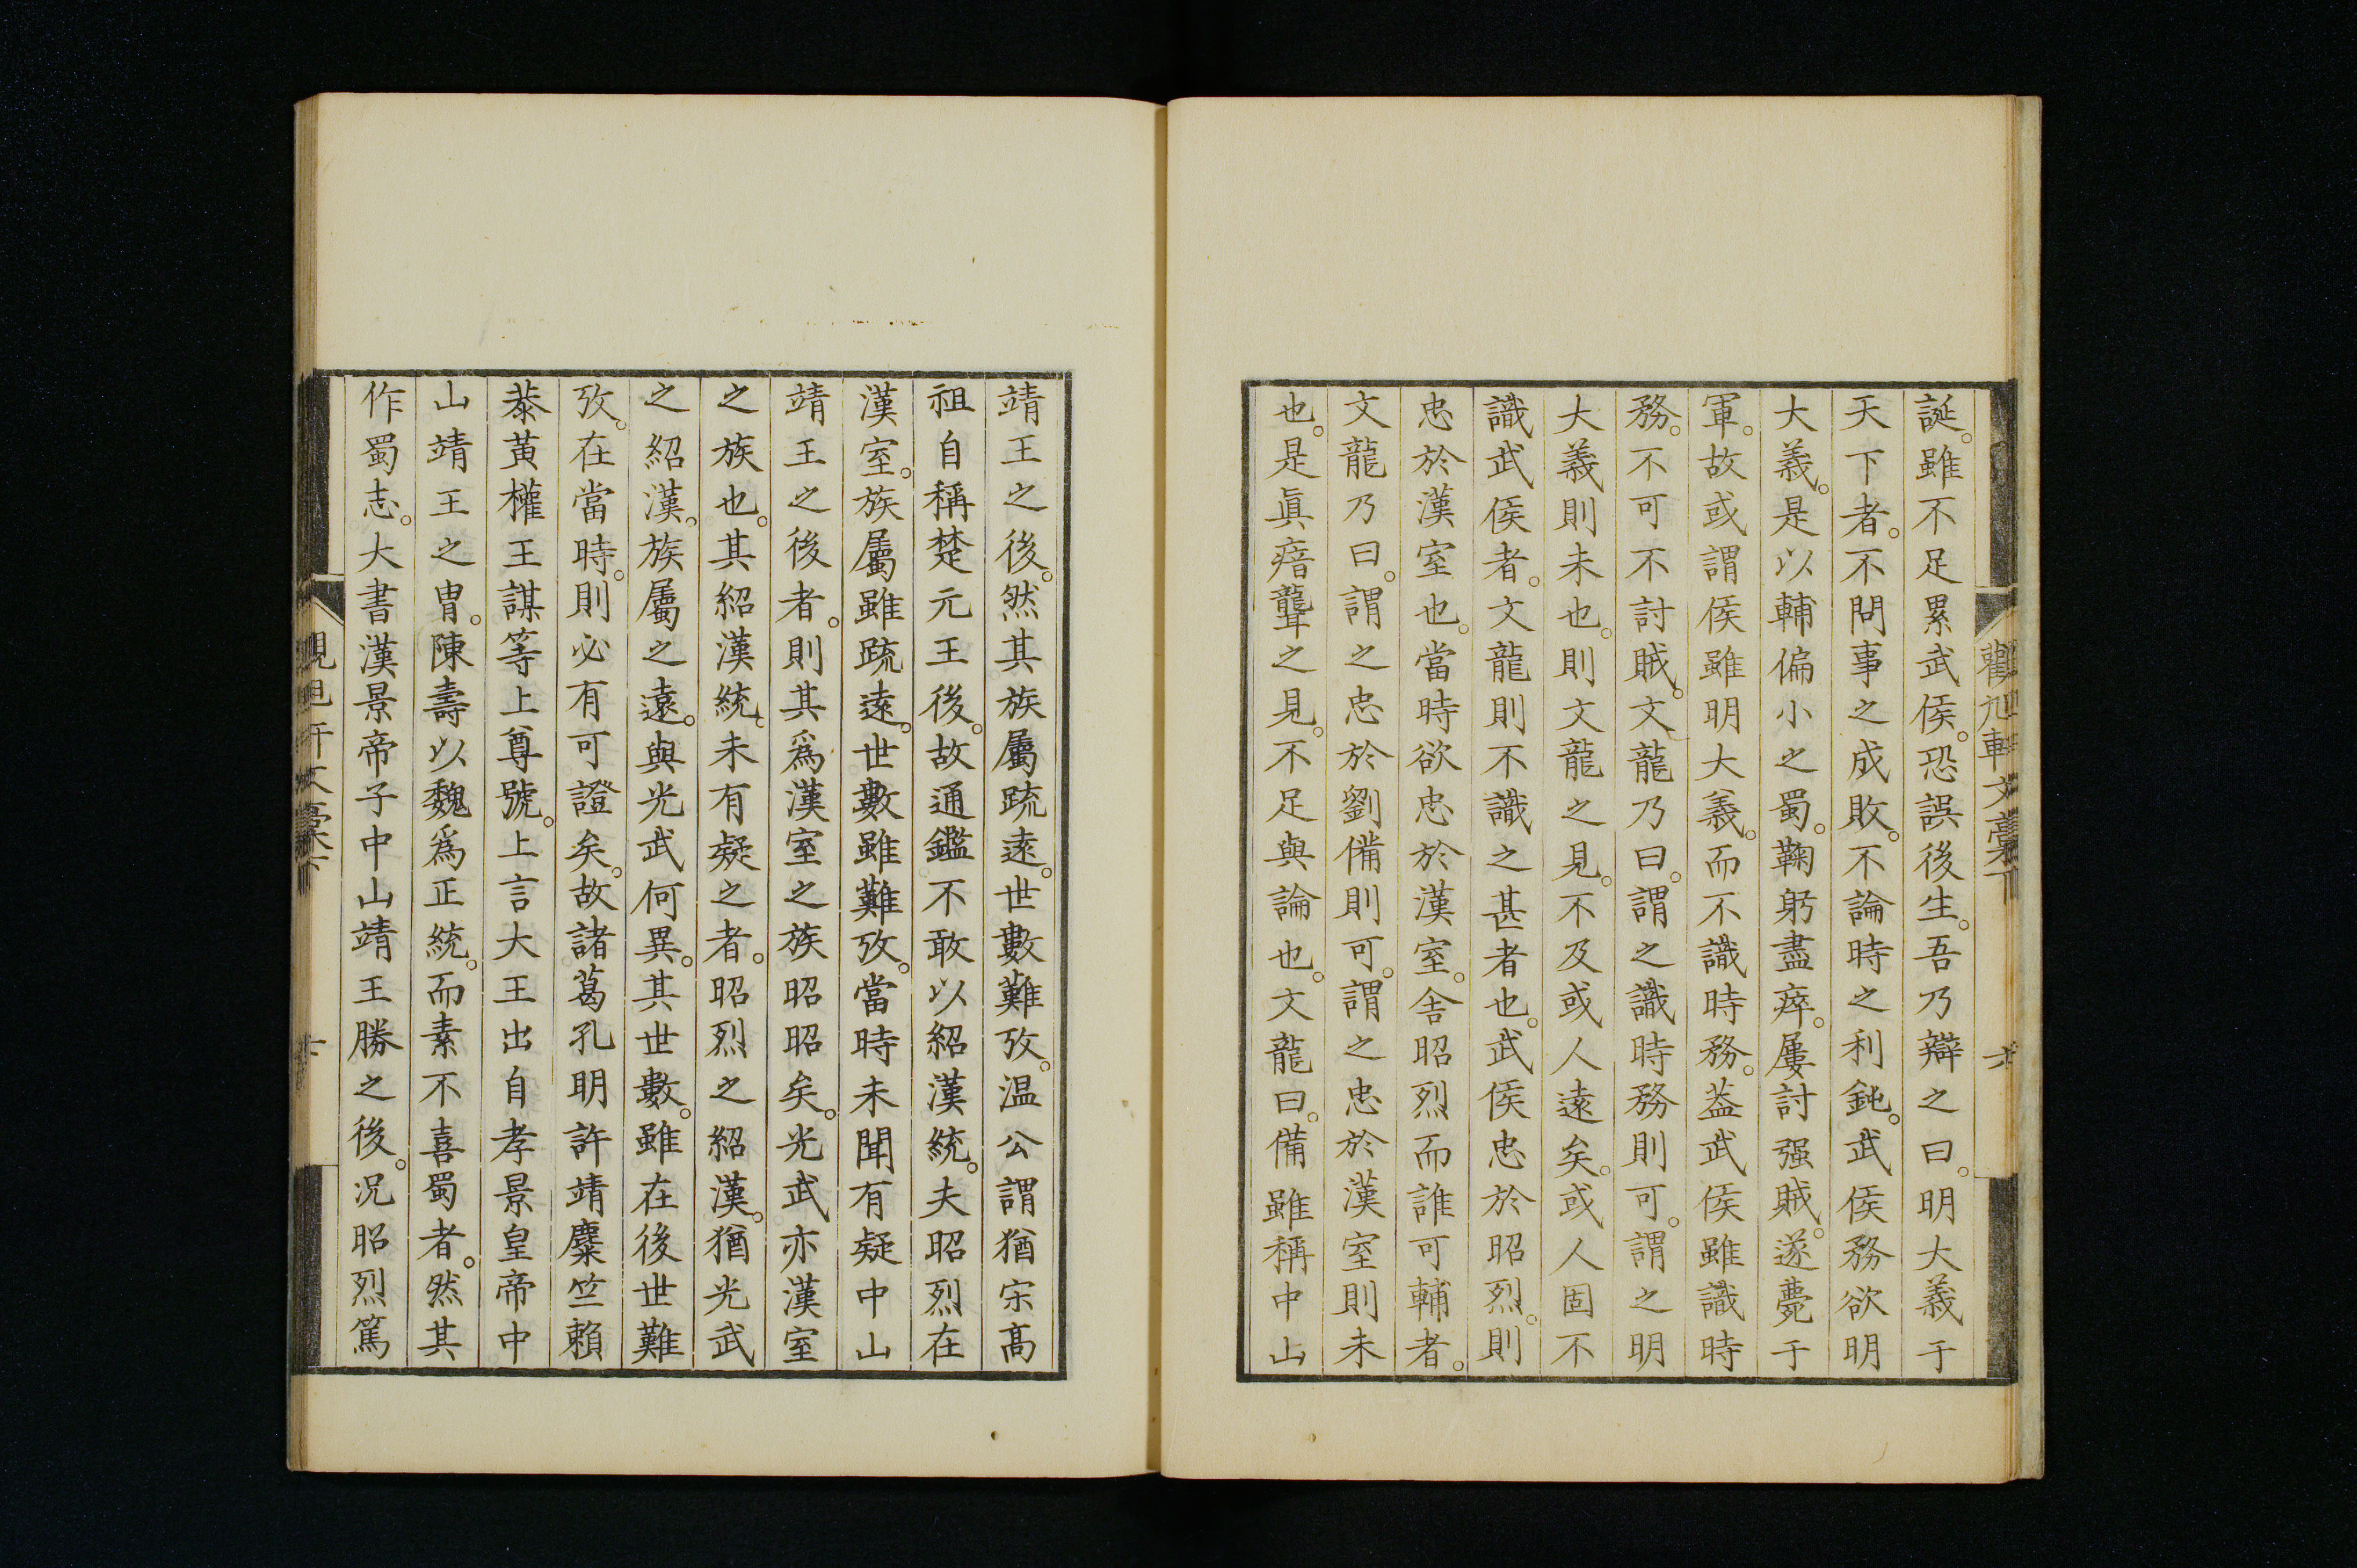 誕。雖不足累武侯。恐誤後生。吾乃辯之曰。明大義于
天下者。不問事之成敗。不論時之利鈍。武侯務欲明
大義。是以輔偏小之蜀。鞠躬盡瘁。屢討强賊。遂薨于
軍。故或謂侯雖明大義。而不識時務。葢武侯雖識時
務。不可不討賊。文龍乃曰。謂之識時務則可。謂之明
大義則未也。則文龍之見。不及或人遠矣。或人固不
識武侯者。文龍則不識之甚者也。武侯忠於昭烈。則
忠於漢室也。當時欲忠於漢室。舍昭烈而誰可輔者。
文龍乃曰。謂之忠於劉備則可。謂之忠於漢室則未
也。是眞瘖聾之見。不足與論也。文龍曰。備雖稱中山
靖王之後。然其族屬疏遠。世數難攷。温公謂猶宋髙
祖自稱楚元王後。故通鑑不敢以紹漢統。夫昭烈在
漢室。族屬雖疏遠。世數雖難攷。當時未聞有疑中山
靖王之後者。則其爲漢室之族昭昭矣。光武亦漢室
之族也。其紹漢統。未有疑之者。昭烈之紹漢。猶光武
之紹漢。族屬之遠。與光武何異。其世數。雖在後世難
攷。在當時。則必有可證矣。故諸葛孔明許靖麋竺賴
恭黃權王謀等上尊號。上言大王出自孝景皇帝中
山靖王之冑。陳壽以魏爲正統。而素不喜蜀者。然其
作蜀志。大書漢景帝子中山靖王勝之後。况昭烈篤
觀旭軒文稾下
六